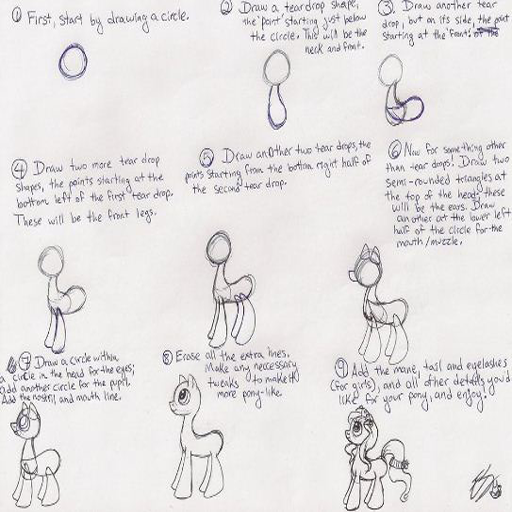 ① First, start by drawing a circle.
② Draw a teardrop shape,
the 'point' starting just below
the circle. This will be the
neck and front.
③ Draw another tear
drop, but on its side, the point
starting at the 'front'. of the
④ Draw two more tear drop
shapes, the points starting at the
bottom left of the first tear drop.
These will be the front legs.
⑤ Draw another two tear drops, the
points starting from the bottom right half of
the second tear drop.
⑥ Now for something other
than tear drops! Draw two
semi-rounded triangles at
the top of the head, these
will be the ears. Draw
another at the lower left
half of the circle for the
mouth/muzzle.
⑦ Draw a circle within
a circle in the head for the eyes;
add another circle for the pupil.
Add the nostril and mouth line.
⑧ Erase all the extra lines.
Make any neccessary
tweaks to make it
more pony-like.
⑨ Add the mane, tail and eyelashes
(for girls), and all other details you'd
like for your pony, and enjoy!